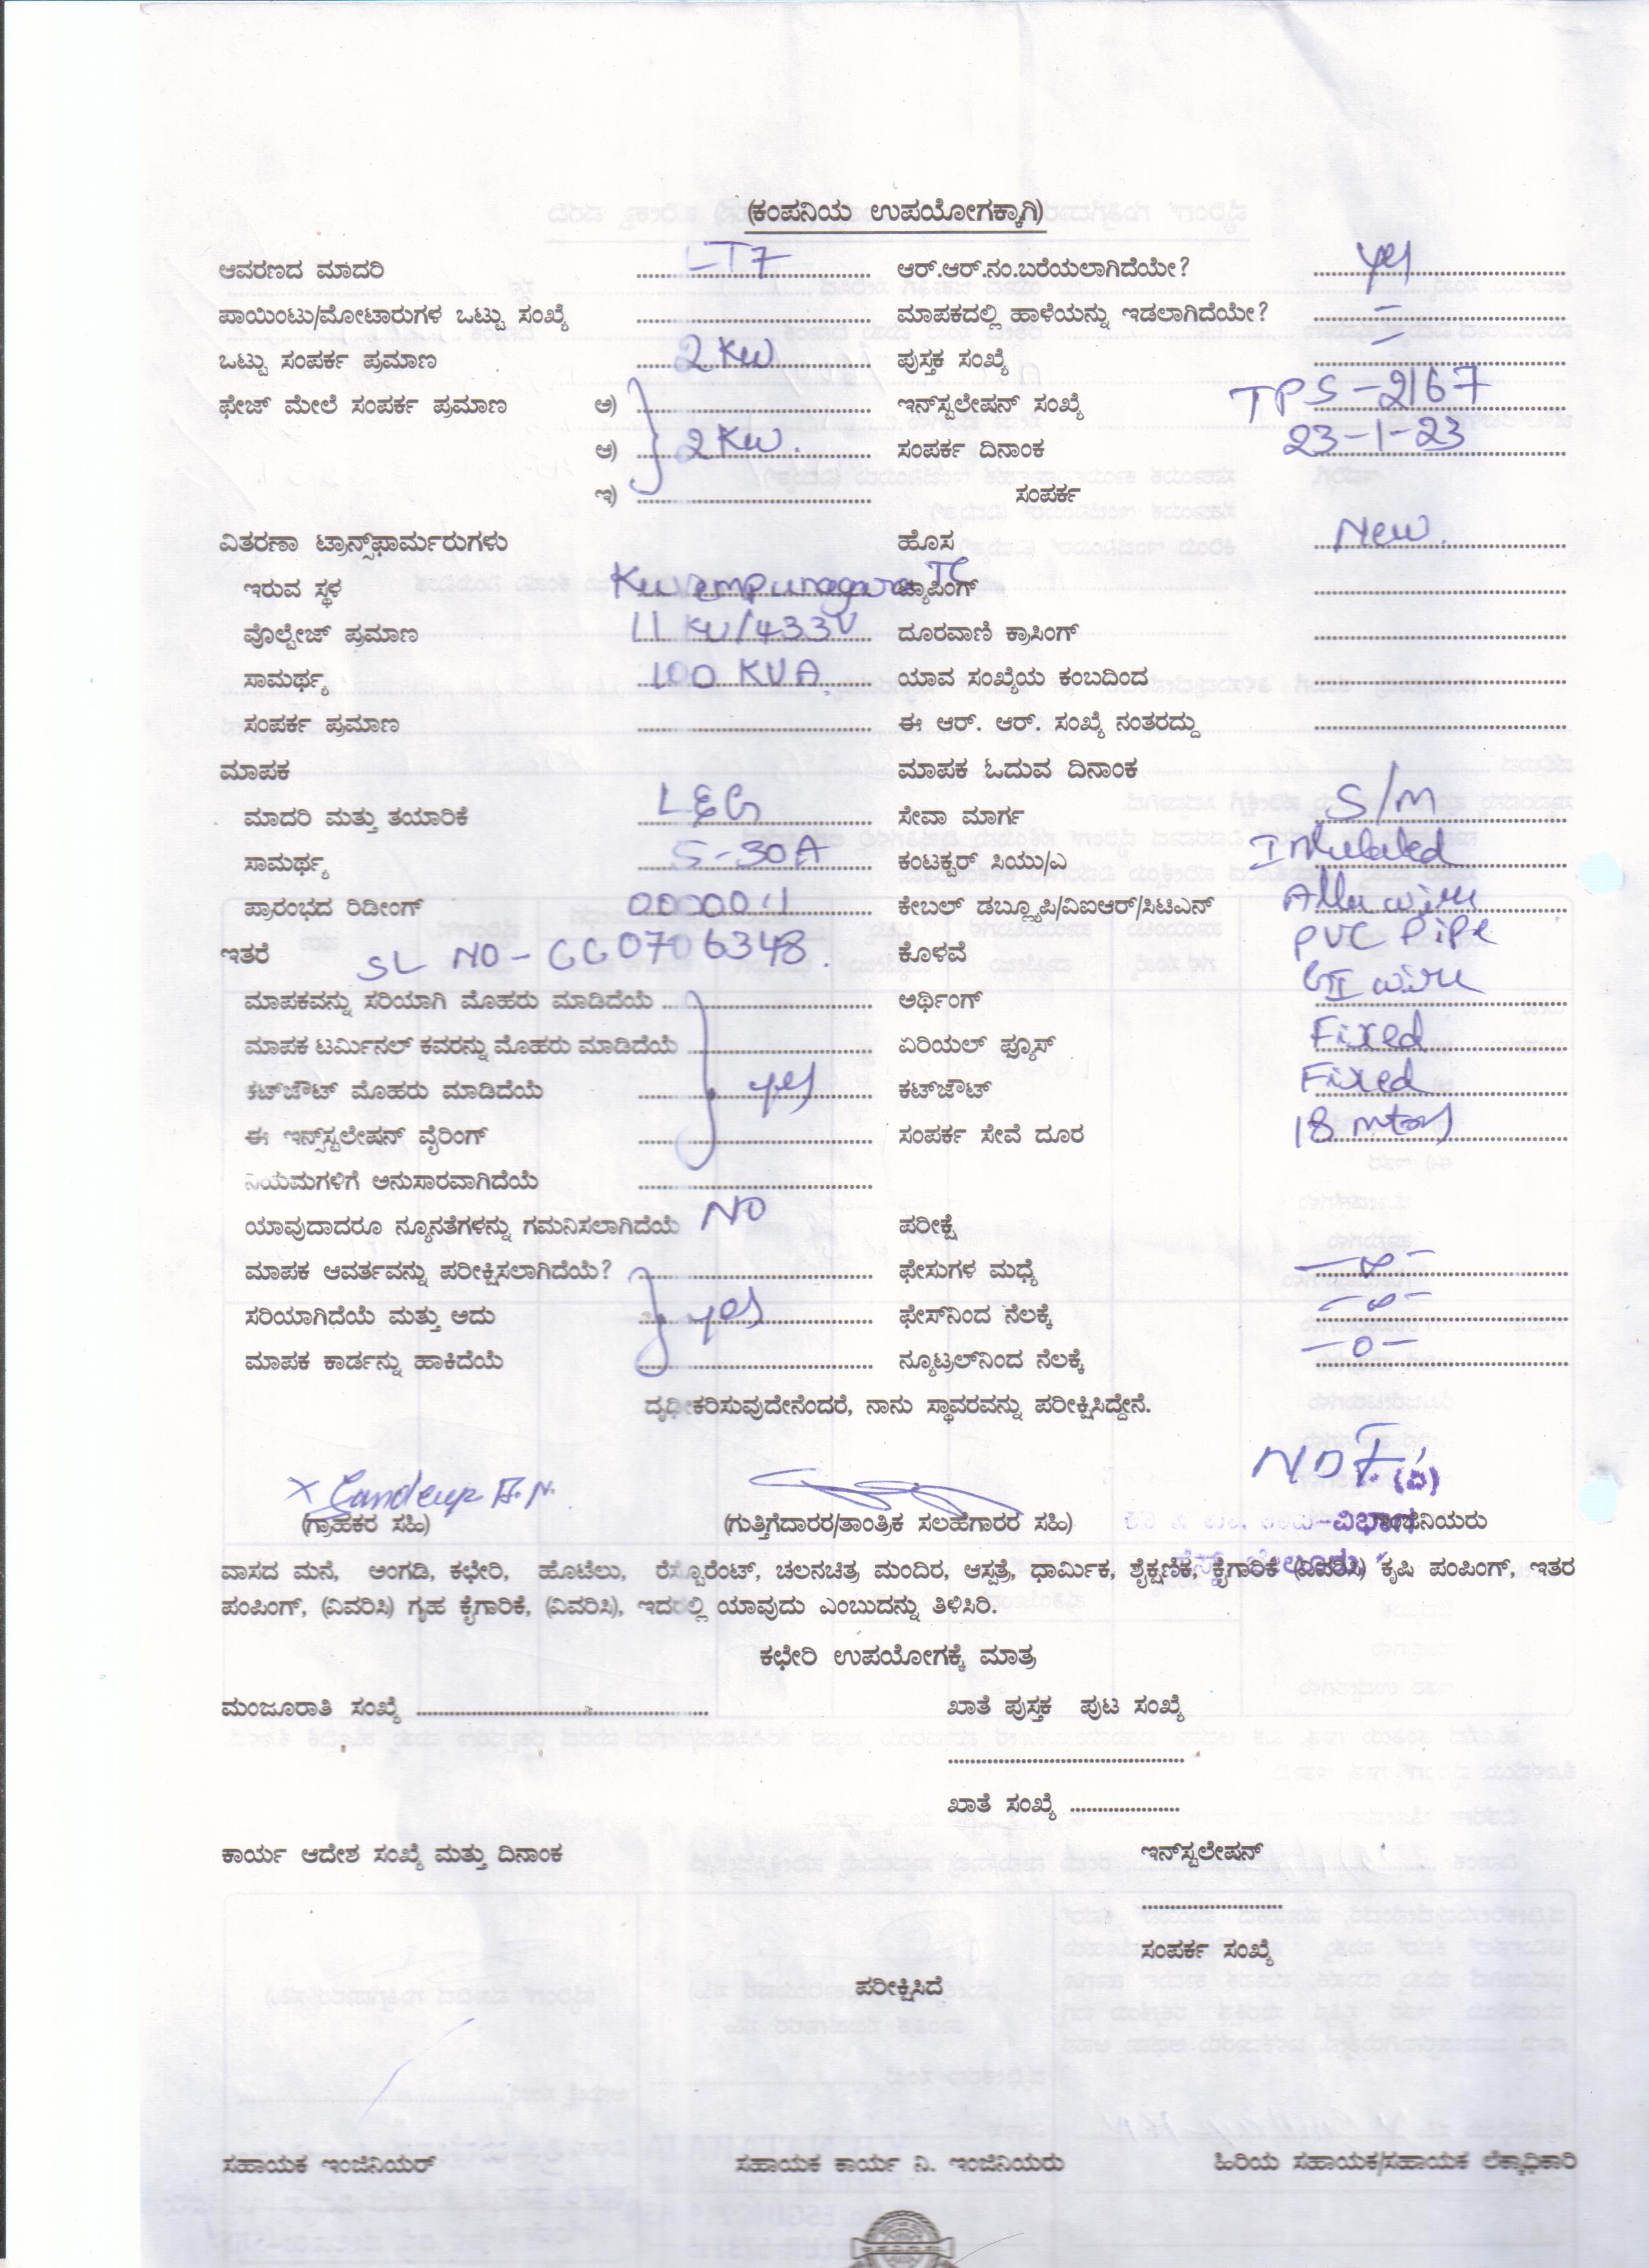 (ಕಂಪನಿಯ ಉಪಯೋಗಕ್ಕಾಗಿ)
ಆವರಣದ ಮಾದರಿ LT7 ಆರ್.ಆರ್.ನಂ.ಬರೆಯಲಾಗಿದೆಯೇ? yes
ಪಾಯಿಂಟು/ಮೋಟಾರುಗಳ ಒಟ್ಟು ಸಂಖ್ಯೆ ಮಾಪಕದಲ್ಲಿ ಹಾಳೆಯನ್ನು ಇಡಲಾಗಿದೆಯೇ? -
ಒಟ್ಟು ಸಂಪರ್ಕ ಪ್ರಮಾಣ 2 KW ಪುಸ್ತಕ ಸಂಖ್ಯೆ -
ಫೇಜ್ ಮೇಲೆ ಸಂಪರ್ಕ ಪ್ರಮಾಣ ಅ) ಇನ್‌ಸ್ಟಲೇಷನ್ ಸಂಖ್ಯೆ TPS-2167
ಆ) 2 KW. ಸಂಪರ್ಕ ದಿನಾಂಕ 23-1-23
ಇ) ಸಂಪರ್ಕ
ವಿತರಣಾ ಟ್ರಾನ್ಸ್‌ಫಾರ್ಮರುಗಳು ಹೊಸ New.
ಇರುವ ಸ್ಥಳ Kuvempunagara TC ಟ್ಯಾಪಿಂಗ್
ವೊಲ್ಟೇಜ್ ಪ್ರಮಾಣ 11 KV/433V ದೂರವಾಣಿ ಕ್ರಾಸಿಂಗ್
ಸಾಮರ್ಥ್ಯ 100 KVA. ಯಾವ ಸಂಖ್ಯೆಯ ಕಂಬದಿಂದ
ಸಂಪರ್ಕ ಪ್ರಮಾಣ ಈ ಆರ್. ಆರ್. ಸಂಖ್ಯೆ ನಂತರದ್ದು
ಮಾಪಕ ಮಾಪಕ ಓದುವ ದಿನಾಂಕ
ಮಾದರಿ ಮತ್ತು ತಯಾರಿಕೆ L&G ಸೇವಾ ಮಾರ್ಗ S/M
ಸಾಮರ್ಥ್ಯ 5-30A ಕಂಟಕ್ಟರ್ ಸಿಯು/ಎ
ಪ್ರಾರಂಭದ ರಿಡೀಂಗ್ ಕೇಬಲ್ ಡಬ್ಲ್ಯೂಪಿ/ವಿಐಆರ್/ಸಿಟಿಎನ್ wire
ಇತರೆ SL NO- GG0706348. ಕೊಳವೆ PVC Pipe
ಮಾಪಕವನ್ನು ಸರಿಯಾಗಿ ಮೊಹರು ಮಾಡಿದೆಯೆ ಅರ್ಥಿಂಗ್ GI wire
ಮಾಪಕ ಟರ್ಮಿನಲ್ ಕವರನ್ನು ಮೊಹರು ಮಾಡಿದೆಯೆ ಏರಿಯಲ್ ಫ್ಯೂಸ್ Fixed
ಕಟ್‌ಔಟ್ ಮೊಹರು ಮಾಡಿದೆಯೆ yes ಕಟ್‌ಔಟ್ Fixed
ಈ ಇನ್‌ಸ್ಟಲೇಷನ್ ವೈರಿಂಗ್ ಸಂಪರ್ಕ ಸೇವೆ ದೂರ 18 mtrs
ನಿಯಮಗಳಿಗೆ ಅನುಸಾರವಾಗಿದೆಯೆ
ಯಾವುದಾದರೂ ನ್ಯೂನತೆಗಳನ್ನು ಗಮನಿಸಲಾಗಿದೆಯೆ NO ಪರೀಕ್ಷೆ
ಮಾಪಕ ಆವರ್ತವನ್ನು ಪರೀಕ್ಷಿಸಲಾಗಿದೆಯೆ? ಫೇಸುಗಳ ಮಧ್ಯೆ -∞-
ಸರಿಯಾಗಿದೆಯೆ ಮತ್ತು ಅದು yes ಫೇಸ್‌ನಿಂದ ನೆಲಕ್ಕೆ -∞-
ಮಾಪಕ ಕಾರ್ಡನ್ನು ಹಾಕಿದೆಯೆ ನ್ಯೂಟ್ರಲ್‌ನಿಂದ ನೆಲಕ್ಕೆ -0-
ದೃಢೀಕರಿಸುವುದೇನೆಂದರೆ, ನಾನು ಸ್ಥಾವರವನ್ನು ಪರೀಕ್ಷಿಸಿದ್ದೇನೆ.
x Sandeep H.N. (ವಿ)
(ಗ್ರಾಹಕರ ಸಹಿ) (ಗುತ್ತಿಗೆದಾರರ/ತಾಂತ್ರಿಕ ಸಲಹೆಗಾರರ ಸಹಿ) ವಿಭಾಗ ಇಂಜಿನಿಯರು
ವಾಸದ ಮನೆ, ಅಂಗಡಿ, ಕಛೇರಿ, ಹೊಟೆಲು, ರೆಸ್ಟೊರೆಂಟ್, ಚಲನಚಿತ್ರ ಮಂದಿರ, ಆಸ್ಪತ್ರೆ, ಧಾರ್ಮಿಕ, ಶೈಕ್ಷಣಿಕ, ಕೈಗಾರಿಕೆ (ವಿವರಿಸಿ) ಕೃಷಿ ಪಂಪಿಂಗ್, ಇತರ
ಪಂಪಿಂಗ್, (ವಿವರಿಸಿ) ಗೃಹ ಕೈಗಾರಿಕೆ, (ವಿವರಿಸಿ), ಇದರಲ್ಲಿ ಯಾವುದು ಎಂಬುದನ್ನು ತಿಳಿಸಿರಿ.
ಕಛೇರಿ ಉಪಯೋಗಕ್ಕೆ ಮಾತ್ರ
ಮಂಜೂರಾತಿ ಸಂಖ್ಯೆ ಖಾತೆ ಪುಸ್ತಕ ಪುಟ ಸಂಖ್ಯೆ
ಖಾತೆ ಸಂಖ್ಯೆ
ಕಾರ್ಯ ಆದೇಶ ಸಂಖ್ಯೆ ಮತ್ತು ದಿನಾಂಕ ಇನ್‌ಸ್ಟಲೇಷನ್
ಸಂಪರ್ಕ ಸಂಖ್ಯೆ
ಪರೀಕ್ಷಿಸಿದೆ
ಸಹಾಯಕ ಇಂಜಿನಿಯರ್ ಸಹಾಯಕ ಕಾರ್ಯ ನಿ. ಇಂಜಿನಿಯರು ಹಿರಿಯ ಸಹಾಯಕ/ಸಹಾಯಕ ಲೆಕ್ಕಾಧಿಕಾರಿ